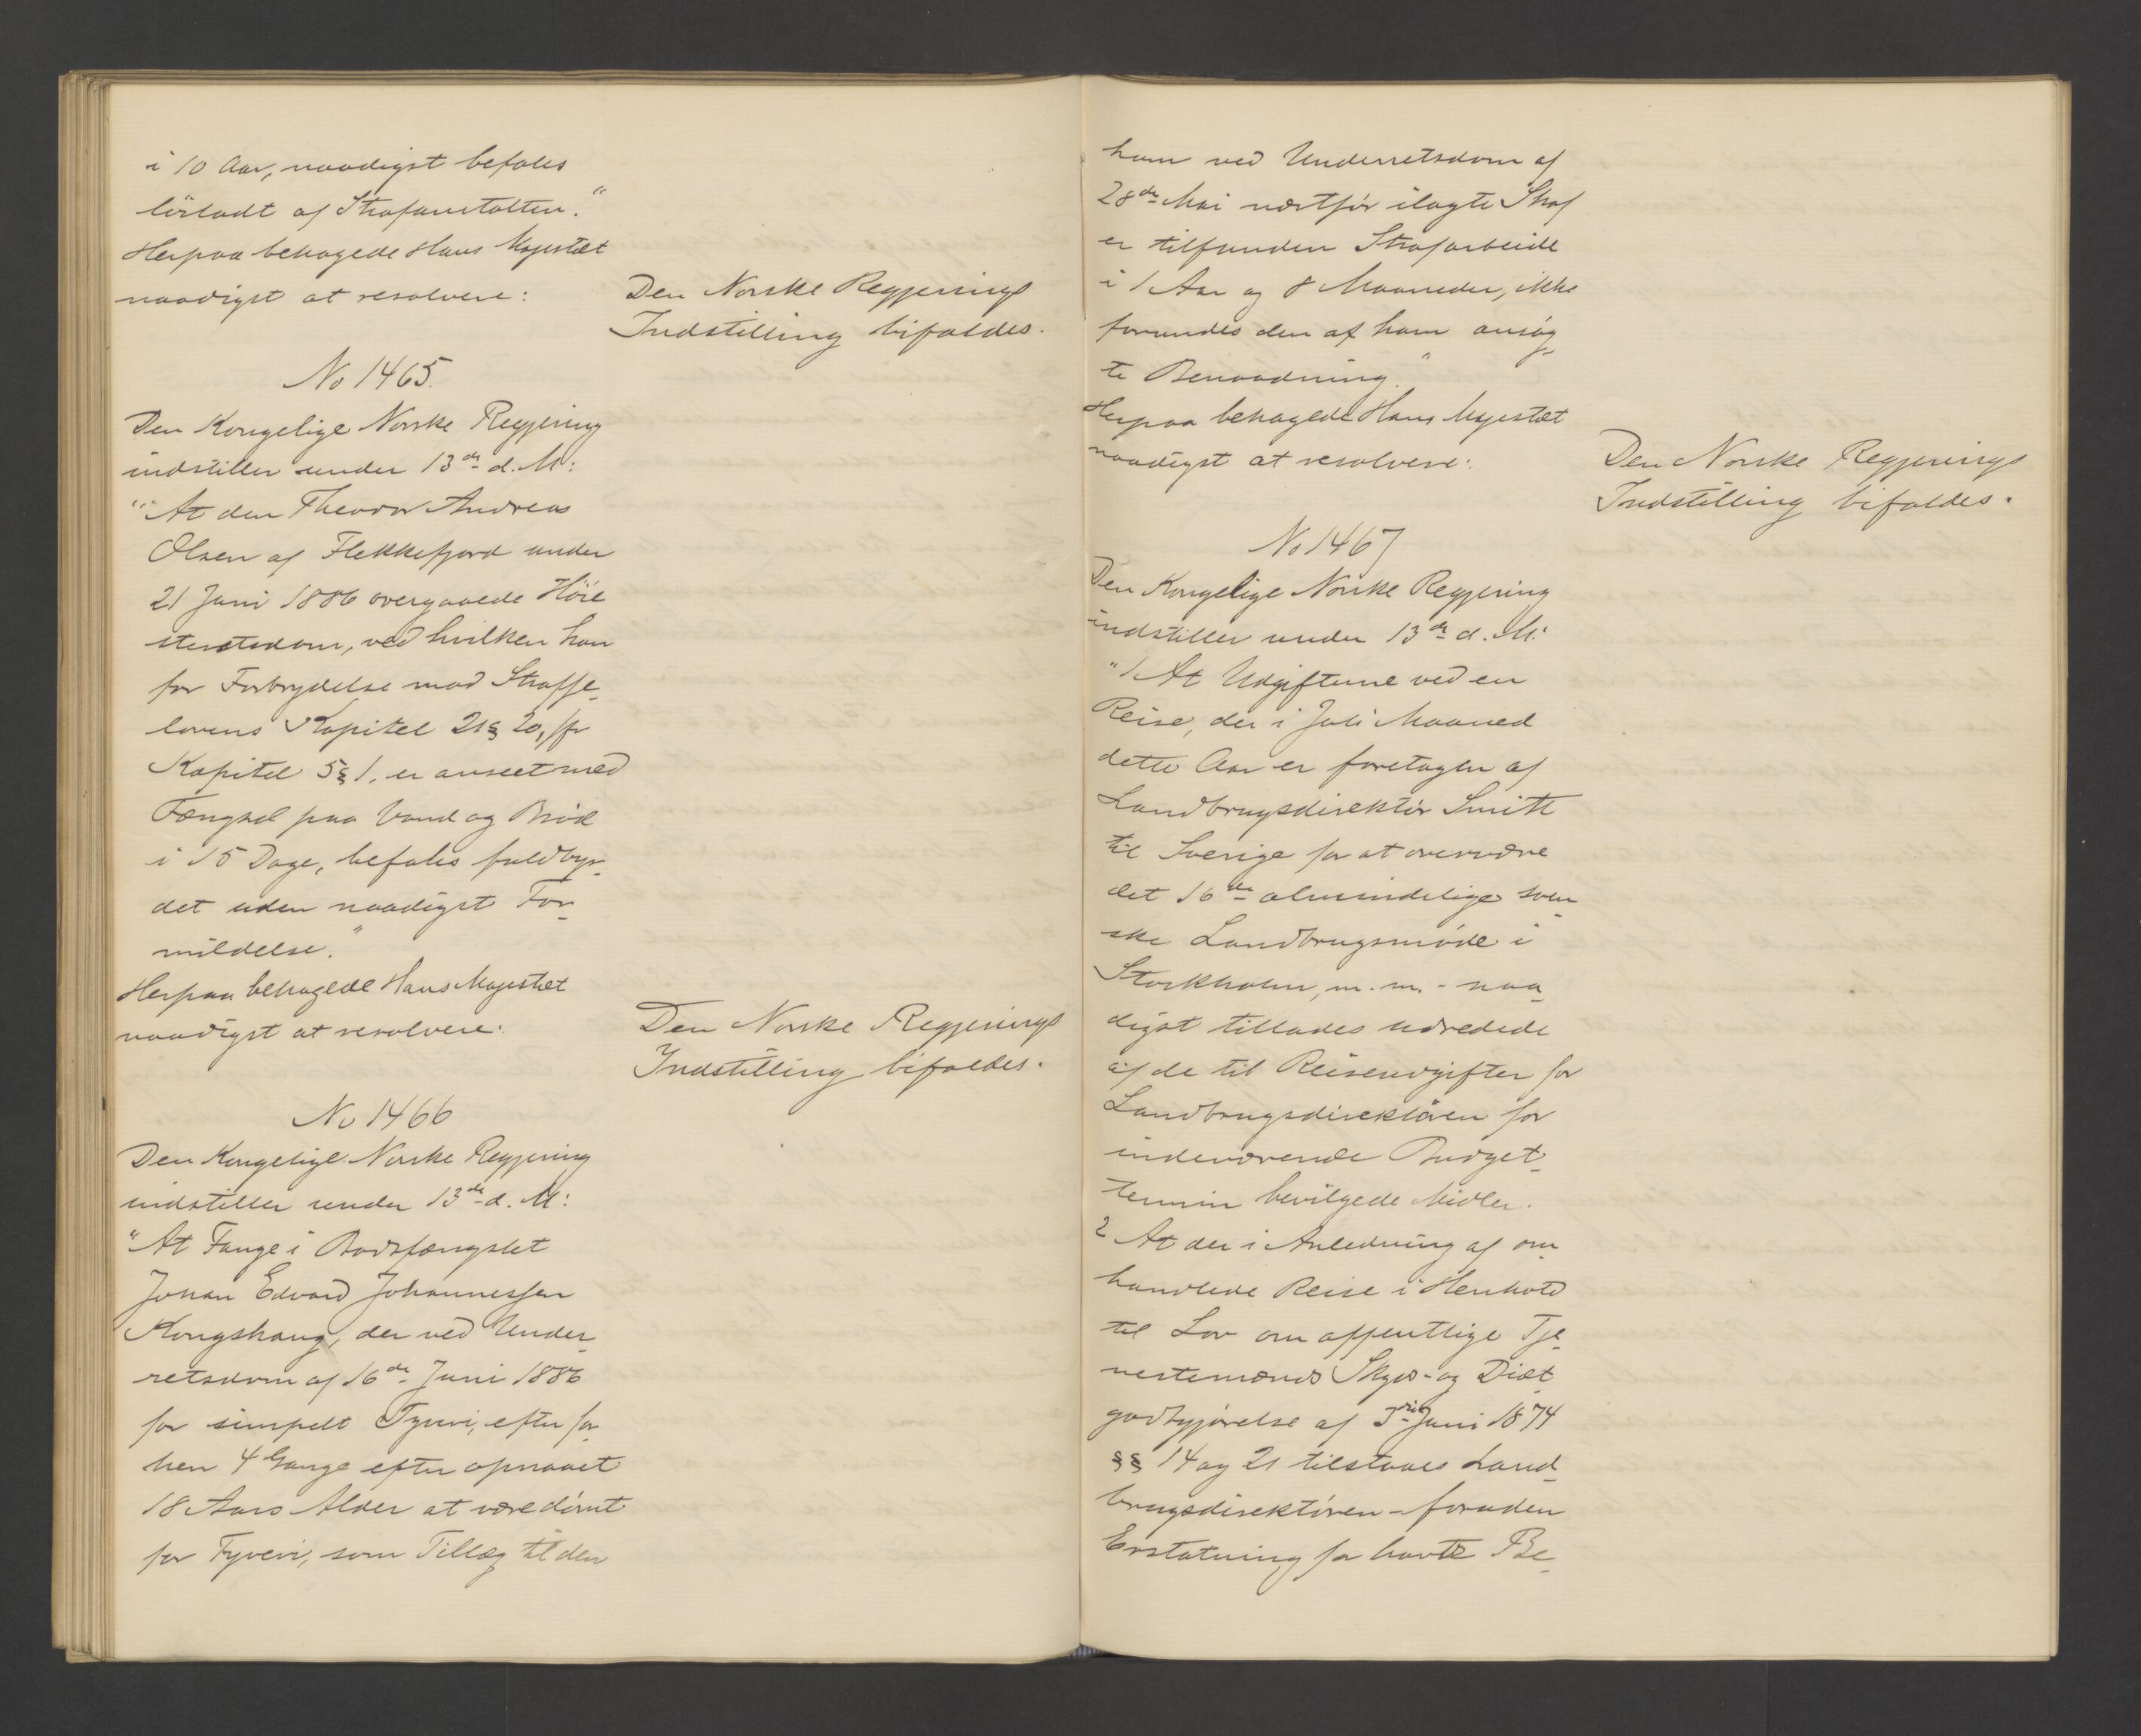 i 10 Aar, naadigst befales
lösladt af Strafanstalten."
Herpaa behagede Hans Majestæt
naadigst at resolvere:
Den Norske Regjerings
Indstilling bifaldes.
No 1465.
Den Kongelige Norske Regjering
indstiller under 13de d. M:
"At den Theodor Andreas
Olsen af Flekkefjord under
21 Juni 1886 overgaaede Höie
steretsdom, ved hvilken han
for Forbrydelse mod Straffe-
lovens Kapitel 21 § 20, jfr
Kapitel 5 § 1, er anseet med
Fængsel paa Vand og Bröd
i 15 Dage, befales fuldbyr-
det uden naadigst For-
mildelse."
Herpaa behagede Hans Majestæt
naadigst at resolvere:
Den Norske Regjerings
Indstilling bifaldes.
No 1466
Den Kongelige Norske Regjering
indstiller under 13de d. M:
"At Fange i Bodsfængslet
Johan Edvard Johannessen
Kongshaug, der ved Under-
retsdom af 16de Juni 1886
for simpelt Tyveri, efter for
hen 4 Gange efter opnaaet
18 Aars Alder at være dömt
for Tyveri, som Tillæg til den
ham ved Underretsdom af
28de Mai næstför ilagte Straf
er tilfunden Strafarbeide
i 1 Aar og 8 Maaneder, ikke
forundes den af ham ansög-
te Benaadning."
Herpaa behagede Hans Majestæt
naadigst at resolvere:
Den Norske Regjerings
Indstilling bifaldes.
No 1467
Den Kongelige Norske Regjering
indstiller under 13de d. M:
"1 At Udgifterne ved en
Reise, der i Juli Maaned
dette Aar er foretagen af
Landbrugsdirektör Smitt
til Sverige for at overvære
det 16de almindelige sven-
ske Landbrugsmöde i
Stockholm, m. m. - naa-
digst tillades udredede
af de til Reiseudgifter for
Landbrugsdirektören for
indeværende Budget-
termin bevilgede Midler.
2 At der i Anledning af om-
handlede Reise i Henhold
til Lov om offentlige Tje-
nestemænds Skyds- og Diæt-
godtgjörelse af 3die Juni 1874
§§ 14 og 21 tilstaaes Land-
brugsdirektören - foruden
Erstatning for havte Be-